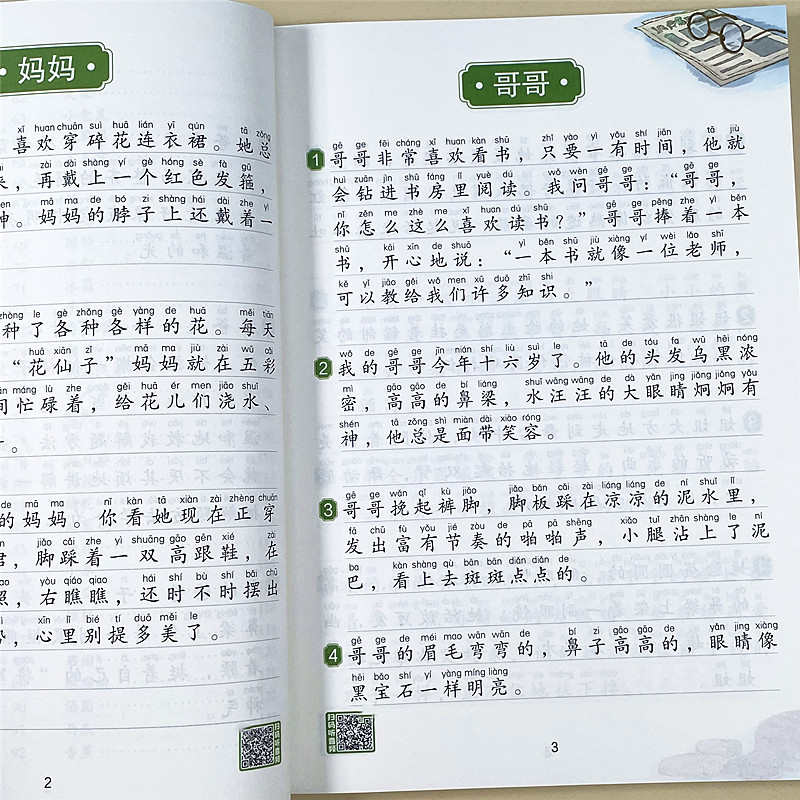 妈妈
xǐ huan chuān suì huā lián yī qún tā zǒng
喜欢穿碎花连衣裙。她总
zài dài shàng yí gè hóng sè fà gū
来，再戴上一个红色发箍，
mā ma de bó zi shàng hái dài zhe yī
神。妈妈的脖子上还戴着一
zhòng le gè zhǒng gè yàng de huā měi tiān
种了各种各样的花。每天
huā xiān zǐ mā ma jiù zài wǔ cǎi
“花仙子”妈妈就在五彩
máng lù zhe gěi huā ér men jiāo shuǐ
间忙碌着，给花儿们浇水、
de mā ma nǐ kàn tā xiàn zài zhèng chuān
的妈妈。你看她现在正穿
jiǎo cǎi zhe yì shuāng gāo gēn xié zài
脚踩着一双高跟鞋，在
yòu qiáo qiao hái shí bù shí bǎi chū
照，右瞧瞧，还时不时摆出
xīn lǐ bié tí duō měi le
心里别提多美了。
扫码听音频
2
哥哥
gē ge fēi cháng xǐ huan kàn shū zhǐ yào yì yǒu shí jiān tā jiù
1 哥哥非常喜欢看书，只要一有时间，他就
huì zuān jìn shū fáng lǐ yuè dú wǒ wèn gē ge gē ge
会钻进书房里阅读。我问哥哥：“哥哥，
nǐ zěn me zhè me xǐ huan dú shū gē ge pěng zhe yì běn
你怎么这么喜欢读书？”哥哥捧着一本
shū kāi xīn de shuō yì běn shū jiù xiàng yí wèi lǎo shī
书，开心地说：“一本书就像一位老师，
kě yǐ jiāo gěi wǒ men xǔ duō zhī shi
可以教给我们许多知识。”
wǒ de gē ge jīn nián shí liù suì le tā de tóu fa wū hēi nóng
2 我的哥哥今年十六岁了。他的头发乌黑浓
mì gāo gāo de bí liáng shuǐ wāng wāng de dà yǎn jing jiǒng jiǒng yǒu
密，高高的鼻梁，水汪汪的大眼睛炯炯有
shén tā zǒng shì miàn dài xiào róng
神，他总是面带笑容。
gē ge wǎn qǐ kù jiǎo jiǎo bǎn cǎi zài liáng liáng de ní shuǐ lǐ
3 哥哥挽起裤脚，脚板踩在凉凉的泥水里，
fā chū fù yǒu jié zòu de pā pā shēng xiǎo tuǐ zhān shàng le ní
发出富有节奏的啪啪声，小腿沾上了泥
ba kàn shàng qù bān bān diǎn diǎn de
巴，看上去斑斑点点的。
gē ge de méi mao wān wān de bí zi gāo gāo de yǎn jing xiàng
4 哥哥的眉毛弯弯的，鼻子高高的，眼睛像
hēi bǎo shí yí yàng míng liàng
黑宝石一样明亮。
扫码听音频
3